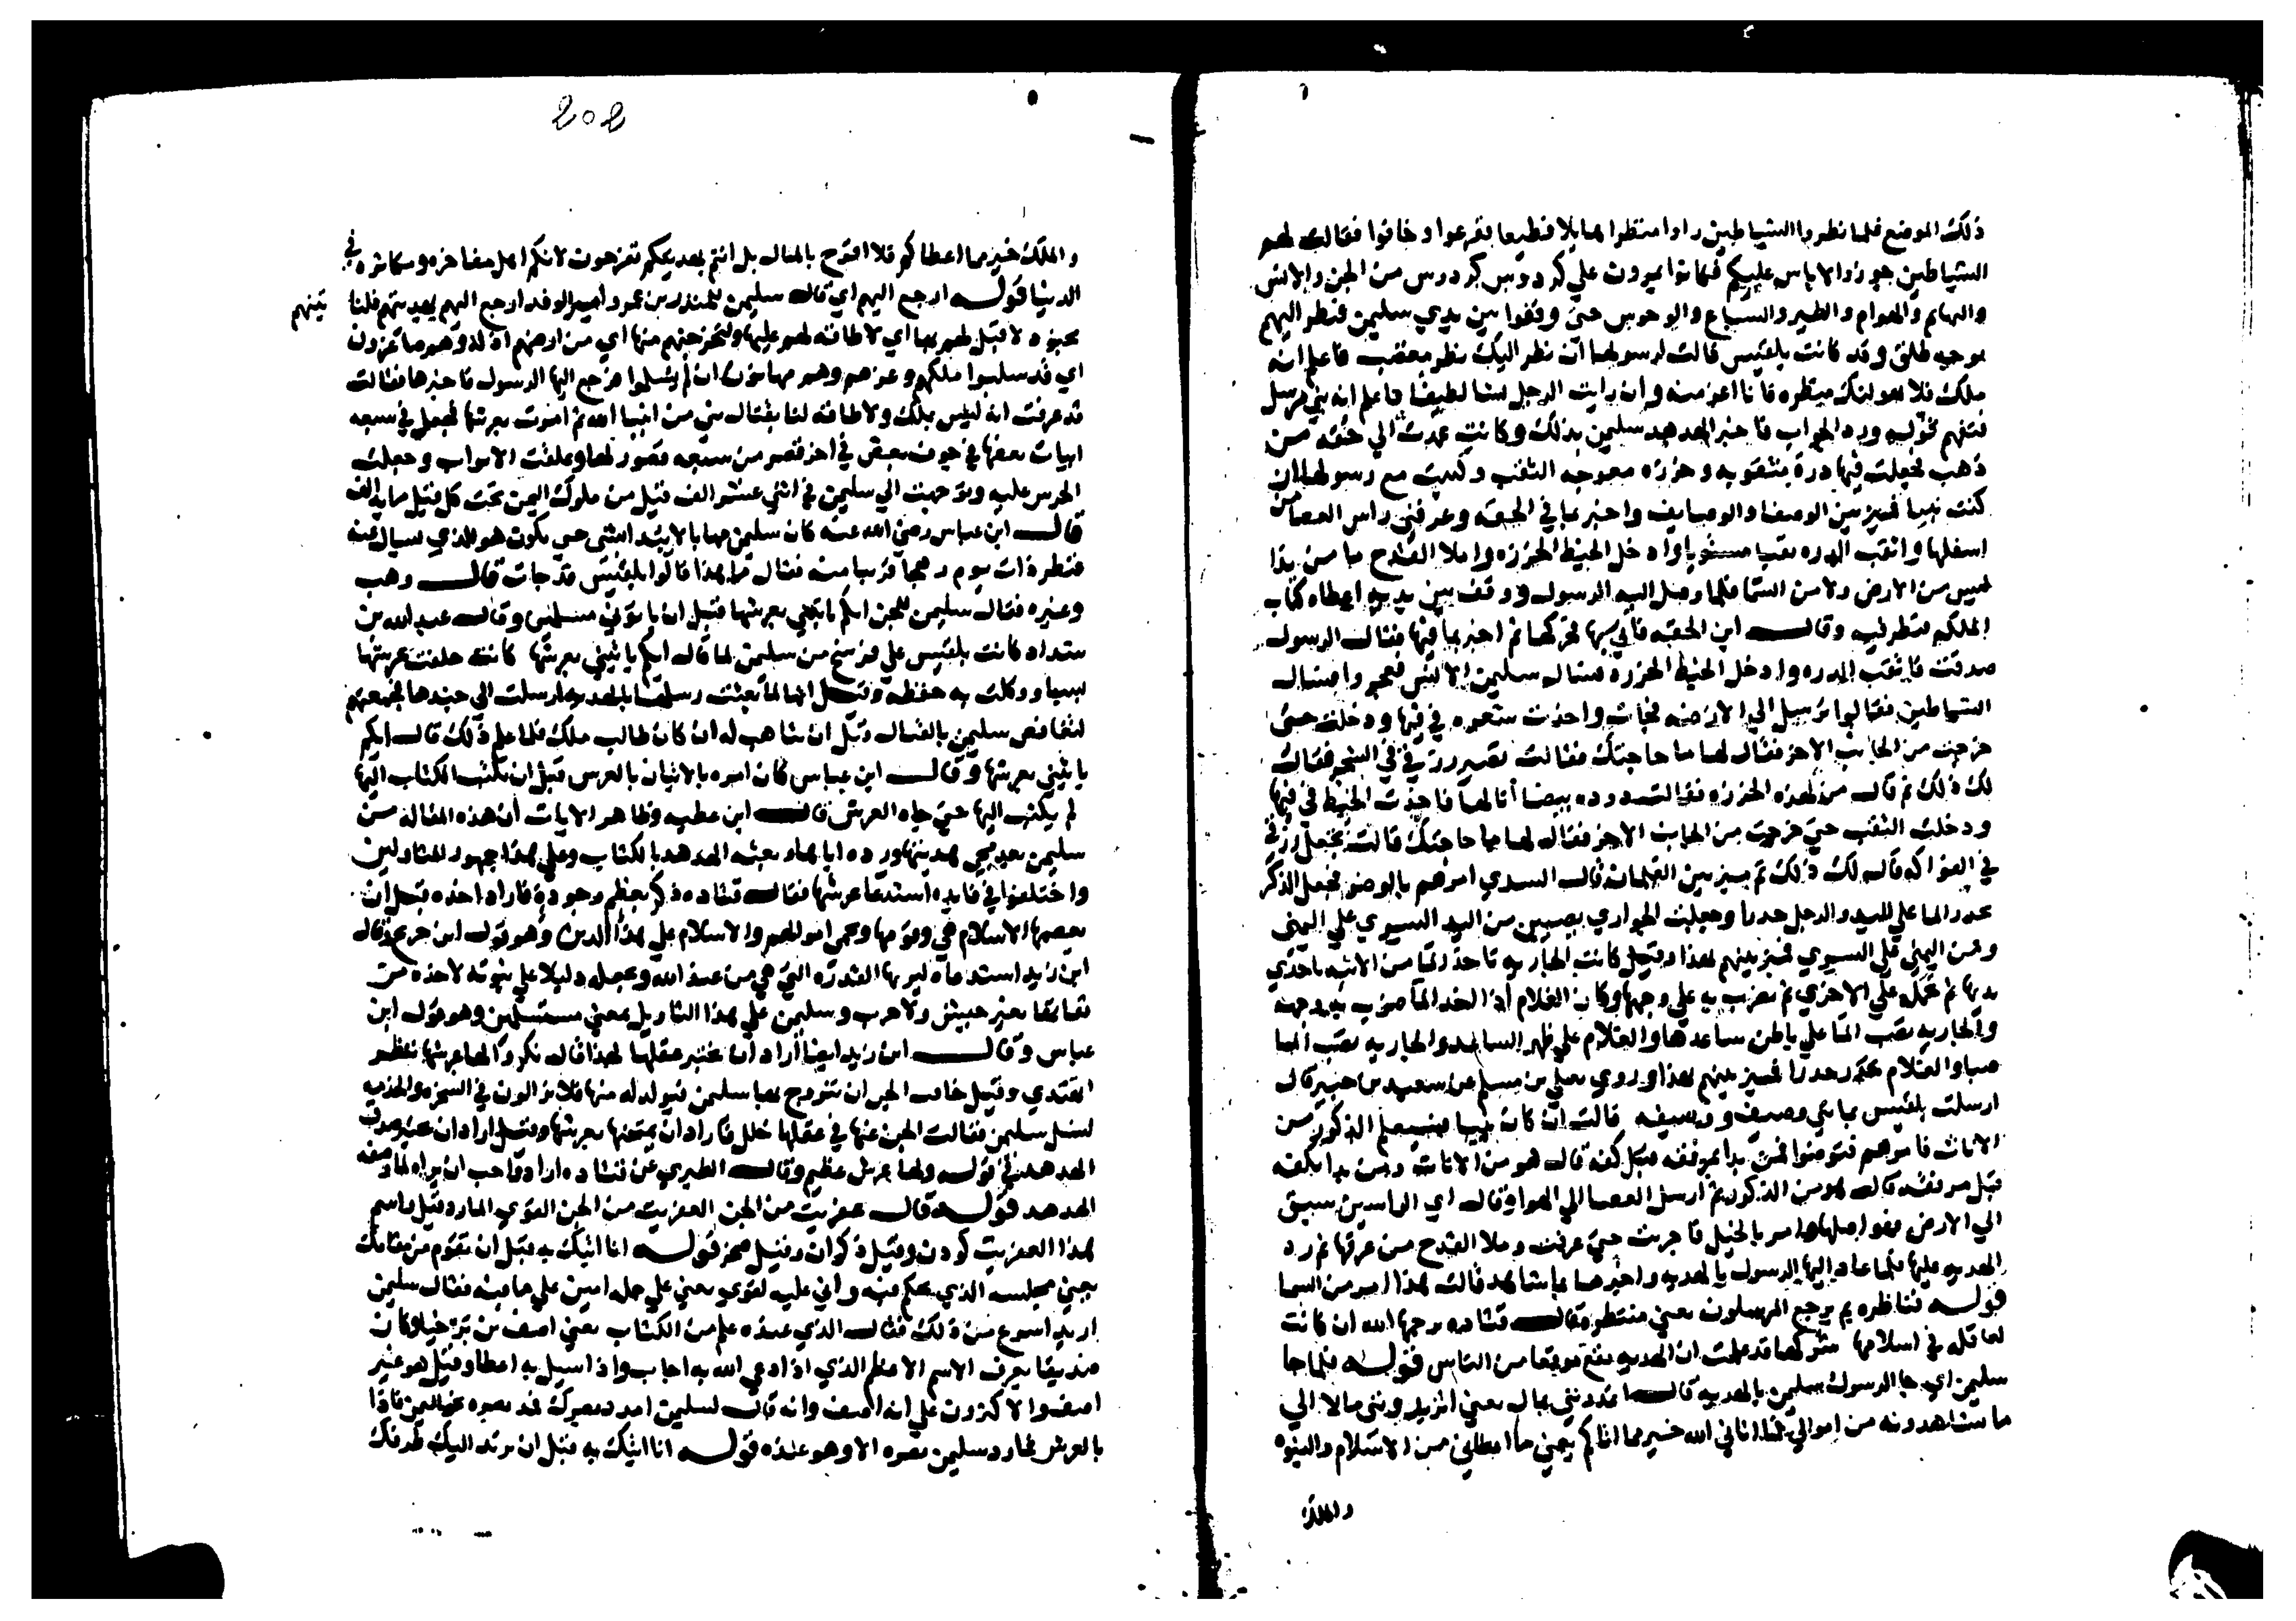 ذلك الموضع فلما نظروا الشياطين راوا منظرا هايلا فظيعا ففزعوا وخافوا فقالت لهم
الشياطين جوزوا لا باس عليكم فكانوا يمرون علي كردوس كردوس من الجن والانس
والبهايم والهوام والطير والسباع والوحوش حتي وقفوا بين يدي سليمن فنظر اليهم
بوجه طلق وقد كانت بلقيس قالت لرسولها ان نظر اليك نظر مغضب فاعلم انه
ملك فلا يهولنك منظره فانا اعز منه وان رايت الرجل بشا لطيفا فاعلم انه نبي مرسل
فتفهم قوله ورد الجواب فاخبر الهدهد سليمن بذلك وكانت عمدت الي حقه من
ذهب فجعلت فيها درة مثقوبه وخرزه معوجه الثقب وكتبت مع رسولها ان
كنت نبيا فميز بين الوصفا والوصايف واخبر بما في الحقه وعرفني راس العصا من
اسفلها واثقب الدره ثقبا مستويا وادخل الخيط الخرزه واملا القدح ما من ندا
ليس من الارض ولا من السما فلما وصل اليه الرسول ووقف بين يديه اعطاه كتاب
الملكه فنظر فيه وقال اين الحقه فاتي بها فحركها ثم اخبر بما فيها فقال الرسول
صدقت فاثقب الدره وادخل الخيط الخرزه فسال سليمن الانس فعجزوا وسال
الشياطين فقالوا نرسل الي الارضه فجات واخذت شعره في فيها ودخلت حتي
خرجت من الجانب الاخر فقال لها ما حاجتك فقالت تصير رزقي في الشجر فقال
لك ذلك ثم قال من لهذه الخرزه فقالت دوده بيضا انا لها فاخذت الخيط في فيها
ودخلت الثقب حتي خرجت من الجانب الاخر فقال لها ما حاجتك قالت تجعل رزقي
في الفواكه قال لك ذلك ثم ميز بين الغلمان قال السدي امرهم بالوضو فجعل الذكر
يحدر الما علي اليد والرجل حدرا وجعلت الجواري يصببن من اليد اليسري علي اليمني
ومن اليمني علي اليسري فميز بينهم بهذا وقيل كانت الجاريه تاخذ الما من الانيه باحدي
يديها ثم تجعله علي الاخري ثم تضرب به علي وجهها وكان الغلام اذا اخذ الما ضرب به وجهه
والجاريه تصب الما علي باطن ساعدها والغلام علي ظهر الساعد والجاريه تصب الما
صبا والغلام يحدر حدرا فميز بينهم بهذا وروي يعلي بن مسلم عن سعيد بن جبير قال
ارسلت بلقيس بمايتي وصيف ووصيفه قالت ان كان نبيا فسيعلم الذكور من
الاناث فامرهم فتوضوا فمن بدا بمرفقه قبل كفه قال هو من الاناث ومن بدا بكفه
قبل مرفقه قال هو من الذكور ثم ارسل العصا الي الهوا وقال اي الراسين سبق
الي الارض فهو اصلها وامر بالخيل فاجريت حتي عرقت وملا القدح من عرقها ثم رد
الهديه عليها فلما عاد اليها الرسول بالهديه واخبرها بما شاهد قالت هذا امر من السما
قوله فناظره بم يرجع المرسلون يعني منتظره قال قتاده يرحمها الله ان كانت
لعاقله في اسلامها شركها قد علمت ان الهديه تقع موقعا من الناس قوله فلما جا
سليمن اي جا الرسول سليمن بالهديه قال اتمدونني بمال يعني اتزيدونني مالا الي
ما تشاهدونه من اموالي فما اتاني الله خير مما اتاكم يعني ما اعطاني من الاسلام والنبوه
والملك
202
والملك خير مما اعطاكم فلا افرح بالمال بل انتم بهديتكم تفرحون لانكم اهل مفاخره ومكاثره في
الدنيا قوله ارجع اليهم اي قال سليمن للمنذر بن عمرو امير الوفد ارجع اليهم بهديتهم فلنا تينهم
بجنود لا قبل لهم بها اي لا طاقه لهم عليها ولنخرجنهم منها اي من ارضهم اذله وهم صاغرون
اي قد سلبوا ملكهم وعزهم وهم مهانون ان لم يسلموا فرجع اليها الرسول فاخبرها فقالت
قد عرفت انه ليس بملك ولا طاقه لنا بقتال نبي من انبيا الله ثم امرت بعرشها فجعل في سبعه
ابيات بعضها في جوف بعض في اخر قصر من سبعه قصور لها وغلقت الابواب وجعلت
الحرس عليه وتوجهت الي سليمن في اثني عشر الف قيل من ملوك اليمن تحت كل قيل مايه الف
قال ابن عباس رضي الله عنه كان سليمن مهابا لا يبتدا بشي حتي يكون هو الذي يسال عنه
فنظر ذات يوم رهجا قريبا منه فقال ما هذا قالوا بلقيس قد جات قال وهب
وغيره فقال سليمن للجن ايكم ياتيني بعرشها قبل ان ياتوني مسلمين وقال عبد الله بن
شداد كانت بلقيس علي فرسخ من سليمن لما قال ايكم ياتيني بعرشها كانت خلفت عرشها
بسبا ووكلت به حفظه وقيل انها لما بعثت رسلها بالهديه ارسلت الي جندها فجمعتهم
لتغافص سليمن بالقتال قبل ان يتاهب له ان كان طالب ملك فلما علم ذلك قال ايكم
ياتيني بعرشها وقال ابن عباس كان امره بالاتيان بالعرش قبل ان يكتب الكتاب اليها
لم يكتب اليها حتي جاه العرش قال ابن عطيه وظاهر الايات ان هذه المقاله من
سليمن بعد مجي هديتها ورده اياها وبعثه الهدهد بالكتاب وعلي هذا جمهور المتاولين
واختلفوا في فايده استدعا عرشها فقال قتاده ذكر بعظم وجوده فاراد اخذه قبل ان
يعصمها الاسلام هي وقومها وحمي اموالهم والاسلام علي هذا الدين وهو قول ابن جريج وقال
ابن زيد استدعاه ليريها القدره التي هي من عند الله ويجعله دليلا علي نبوته لاخذه من
ثقاتها بغير جيش ولا حرب ومسلمين علي هذا التاويل بمعني مستسلمين وهو قول ابن
عباس وقال ابن زيد ايضا اراد ان يختبر عقلها لهذا قال نكروا لها عرشها ننظر
اتهتدي وقيل خافت الجن ان يتزوج بها سليمن فيولد له منها فلا يزالون في السخره والخدمه
لنسل سليمن فقالت الجن عنها في عقلها خلل فاراد ان يمتحنها بعرشها وقيل اراد ان يختبر صدق
الهدهد في قوله ولها عرش عظيم وقال الطبري عن قتاده اراد واحب ان يراه لما وصفه
الهدهد قوله قال عفريت من الجن العفريت من الجن القوي المارد وقيل واسم
هذا العفريت كودن وقيل ذكوان وقيل صخر قوله انا اتيك به قبل ان تقوم من مقامك
يعني مجلسه الذي يحكم فيه واني عليه لقوي يعني علي حمله امين علي ما فيه فقال سليمن
اريد اسرع من ذلك فقال الذي عنده علم من الكتاب يعني اصف بن برخيا وكان
صديقا يعرف الاسم الاعظم الذي اذا دعي الله به اجاب واذا سيل به اعطا وقيل هو غير
اصف والاكثرون علي انه اصف وانه قال لسليمن امدد بصرك فمد بصره نحو اليمن فاذا
بالعرش فما رد سليمن بصره الا وهو عنده قوله انا اتيك به قبل ان يرتد اليك طرفك